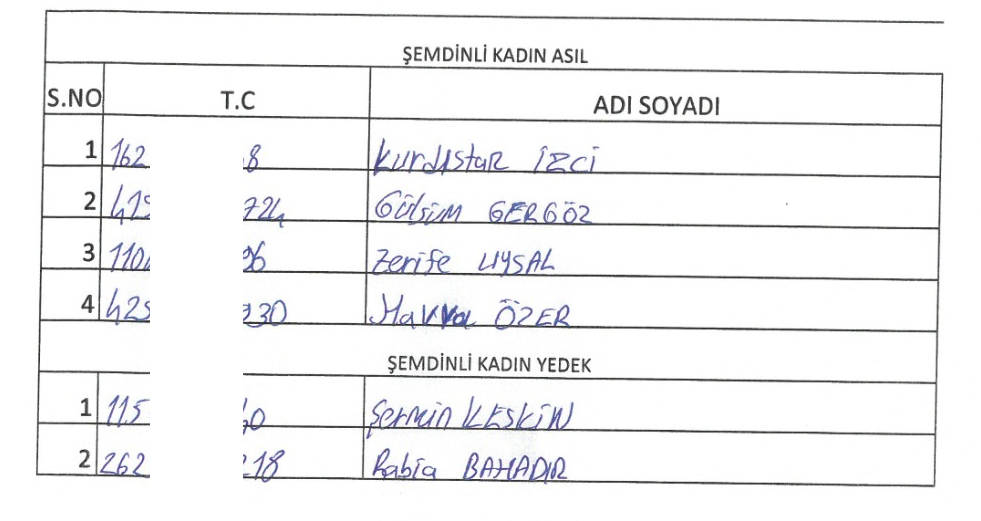 ŞEMDİNLİ KADIN ASIL
S.NO T.C ADI SOYADI
1 162 8 Kurdıstan İZCİ
2 419 724 Gülsüm GERGÖZ
3 110 26 Zerife UYSAL
4 425 930 Havva ÖZER
ŞEMDİNLİ KADIN YEDEK
1 115 60 Şermin KESKİN
2 262 218 Rabia BAHADIR